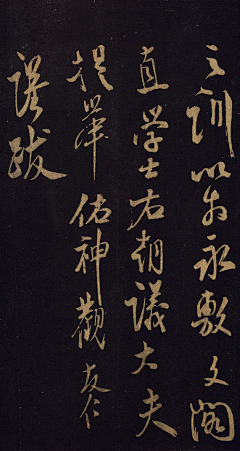 之訓以為永敷文閣
直学士右朝議大夫
提舉佑神觀友仁
謹跋